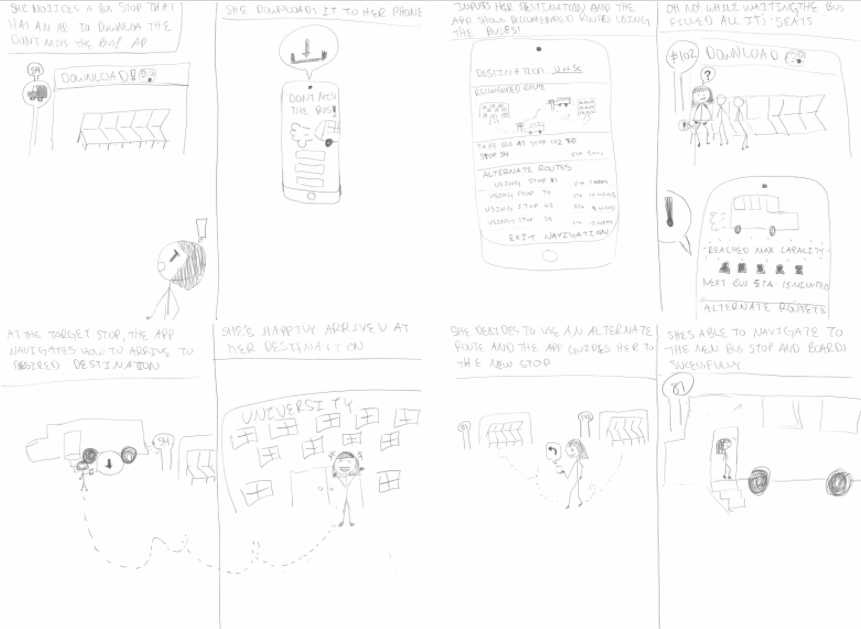 SHE NOTICES A BUS STOP THAT
HAS AN AD TO DOWNLOA THE
DON'T MISS THE BUS! AP
54
DOWNLOAD!
!
SHE DOWNLOADS IT TO HER PHONE
DON'T MISS
THE BUS!
INPUTS HER DESTINATION AND THE
APP SHOWS RECOMMENDED ROUTES USING
THE BUSES!
DESTINATION: U of SC
RECOMENDED ROUTE
TAKE BUS AT STOP 102 TO
STOP 54
ETA 5 MINS
ALTERNATE ROUTES
USING STOP 81 ETA 7 MINS
USING STOP 79 ETA MINUTES
USING STOP 42 ETA 9 MINUTES
USING STOP 34 ETA MINUTES
EXIT NAVIGATION
OH NO! WHILE WAITING THE BUS
FILLED ALL IT'S SEATS
#102
DOWNLOAD
?
!
REACHED MAX CAPACITY
NEXT BUS ETA 15 MINUTES
ALTERNATE ROUTES
AT THE TARGET STOP, THE APP
NAVIGATES HOW TO ARRIVE TO
DESIRED DESTINATION
54
SHE'S HAPPILY ARRIVED AT
HER DESTINATION
UNIVERSITY
SHE DECIDES TO USE AN ALTERNATE
ROUTE AND THE APP GUIDES HER TO
THE NEW STOP
81
102
SHES ABLE TO NAVIGATE TO
THE NEW BUS STOP AND BOARDS
SUCESSFULLY
81